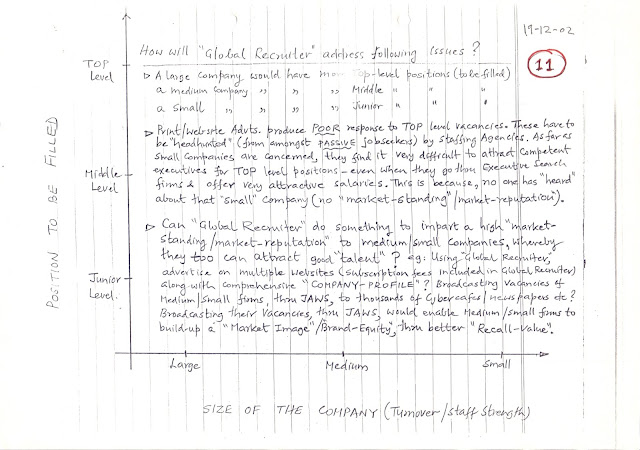 19-12-02
11
How will "Global Recruiter" address following issues?
TOP
Level
▷ A large company would have more Top-level positions (to be filled)
a medium company " " " Middle " " "
a small " " " Junior " " "
▷ Print/website Advts. produce POOR response to TOP level vacancies. These have to
be "headhunted" (from amongst PASSIVE jobseekers) by Staffing Agencies. As far as
Small Companies are concerned, they find it very difficult to attract Competent
executives for TOP level positions - even when they go thru Executive Search
firms & offer very attractive salaries. This is because, no one has "heard"
about that "small" Company (no "market-standing"/market-reputation").
Middle
Level
▷ Can "Global Recruiter" do something to impart a high "market-
standing/market-reputation" to medium/small companies, whereby
they too can attract good "talent"? eg: Using "Global Recruiter,"
advertise on multiple websites (subscription fees included in Global Recruiter)
along with comprehensive "COMPANY-PROFILE"? Broadcasting Vacancies of
Medium/Small firms, thru JAWS, to thousands of Cybercafes/newspapers etc?
Broadcasting their Vacancies, thru JAWS, would enable Medium/small firms to
build-up a "Market Image"/Brand-Equity", thru better "Recall-Value".
Junior
Level
POSITION TO BE FILLED
Large Medium Small
SIZE OF THE COMPANY (Turnover/Staff Strength)